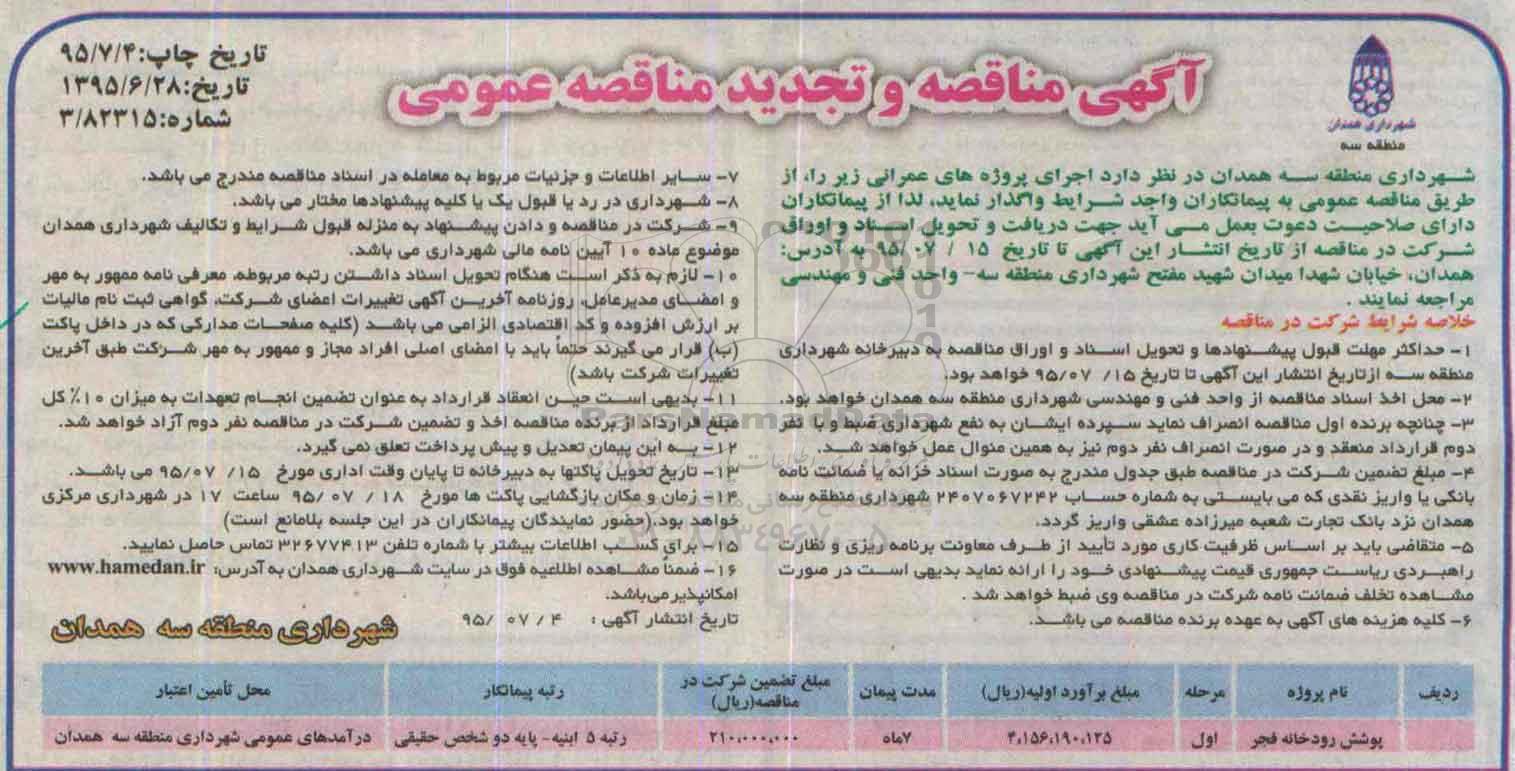 شهرداری همدان
منطقه سه
آگهی مناقصه و تجدید مناقصه عمومی
تاریخ چاپ:۹۵/۷/۴
تاریخ:۱۳۹۵/۶/۲۸
شماره:۳/۸۲۳۱۵
شهرداری منطقه سه همدان در نظر دارد اجرای پروژه های عمرانی زیر را، از
طریق مناقصه عمومی به پیمانکاران واجد شرایط واگذار نماید، لذا از پیمانکاران
دارای صلاحیت دعوت بعمل می آید جهت دریافت و تحویل اسناد و اوراق
شرکت در مناقصه از تاریخ انتشار این آگهی تا تاریخ ۱۵ / ۰۷ /۹۵ به آدرس:
همدان، خیابان شهدا میدان شهید مفتح شهرداری منطقه سه- واحد فنی و مهندسی
مراجعه نمایند .
خلاصه شرایط شرکت در مناقصه
۱- حداکثر مهلت قبول پیشنهادها و تحویل اسناد و اوراق مناقصه به دبیرخانه شهرداری
منطقه سه ازتاریخ انتشار این آگهی تا تاریخ ۱۵/ ۹۵/۰۷ خواهد بود.
۲- محل اخذ اسناد مناقصه از واحد فنی و مهندسی شهرداری منطقه سه همدان خواهد بود.
۳- چنانچه برنده اول مناقصه انصراف نماید سپرده ایشان به نفع شهرداری ضبط و با نفر
دوم قرارداد منعقد و در صورت انصراف نفر دوم نیز به همین منوال عمل خواهد شد.
۴- مبلغ تضمین شرکت در مناقصه طبق جدول مندرج به صورت اسناد خزانه یا ضمانت نامه
بانکی یا واریز نقدی که می بایستی به شماره حساب ۲۴۰۷۰۶۷۲۴۲ شهرداری منطقه سه
همدان نزد بانک تجارت شعبه میرزاده عشقی واریز گردد.
۵- متقاضی باید بر اساس ظرفیت کاری مورد تأیید از طرف معاونت برنامه ریزی و نظارت
راهبردی ریاست جمهوری قیمت پیشنهادی خود را ارائه نماید بدیهی است در صورت
مشاهده تخلف ضمانت نامه شرکت در مناقصه وی ضبط خواهد شد .
۶- کلیه هزینه های آگهی به عهده برنده مناقصه می باشد.
۷- سایر اطلاعات و جزئیات مربوط به معامله در اسناد مناقصه مندرج می باشد.
۸- شهرداری در رد یا قبول یک یا کلیه پیشنهادها مختار می باشد.
۹- شرکت در مناقصه و دادن پیشنهاد به منزله قبول شرایط و تکالیف شهرداری همدان
موضوع ماده ۱۰ آیین نامه مالی شهرداری می باشد.
۱۰- لازم به ذکر است هنگام تحویل اسناد داشتن رتبه مربوطه، معرفی نامه ممهور به مهر
و امضای مدیرعامل، روزنامه آخرین آگهی تغییرات اعضای شرکت، گواهی ثبت نام مالیات
بر ارزش افزوده و کد اقتصادی الزامی می باشد (کلیه صفحات مدارکی که در داخل پاکت
(ب) قرار می گیرند حتماً باید با امضای اصلی افراد مجاز و ممهور به مهر شرکت طبق آخرین
تغییرات شرکت باشد)
۱۱- بدیهی است حین انعقاد قرارداد به عنوان تضمین انجام تعهدات به میزان ۱۰٪ کل
مبلغ قرارداد از برنده مناقصه اخذ و تضمین شرکت در مناقصه نفر دوم آزاد خواهد شد.
۱۲- به این پیمان تعدیل و پیش پرداخت تعلق نمی گیرد.
۱۳- تاریخ تحویل پاکتها به دبیرخانه تا پایان وقت اداری مورخ ۱۵/ ۹۵/۰۷ می باشد.
۱۴- زمان و مکان بازگشایی پاکت ها مورخ ۱۸ / ۰۷ /۹۵ ساعت ۱۷ در شهرداری مرکزی
خواهد بود.(حضور نمایندگان پیمانکاران در این جلسه بلامانع است)
۱۵- برای کسب اطلاعات بیشتر با شماره تلفن ۳۲۶۷۷۴۱۳ تماس حاصل نمایید.
۱۶- ضمناً مشاهده اطلاعیه فوق در سایت شهرداری همدان به آدرس: www.hamedan.ir
امکانپذیر می‌باشد.
تاریخ انتشار آگهی : ۴ / ۰۷ /۹۵
شهرداری منطقه سه همدان
ParsNamadData
۰۲۱-۸۸۳۴۹۶۷۰-۵
ردیف نام پروژه مرحله مبلغ برآورد اولیه(ریال) مدت پیمان مبلغ تضمین شرکت در مناقصه(ریال) رتبه پیمانکار محل تأمین اعتبار
پوشش رودخانه فجر اول ۴،۱۵۶،۱۹۰،۱۳۵ ۷ماه ۲۱۰،۰۰۰،۰۰۰ رتبه ۵ ابنیه- پایه دو شخص حقیقی درآمدهای عمومی شهرداری منطقه سه همدان